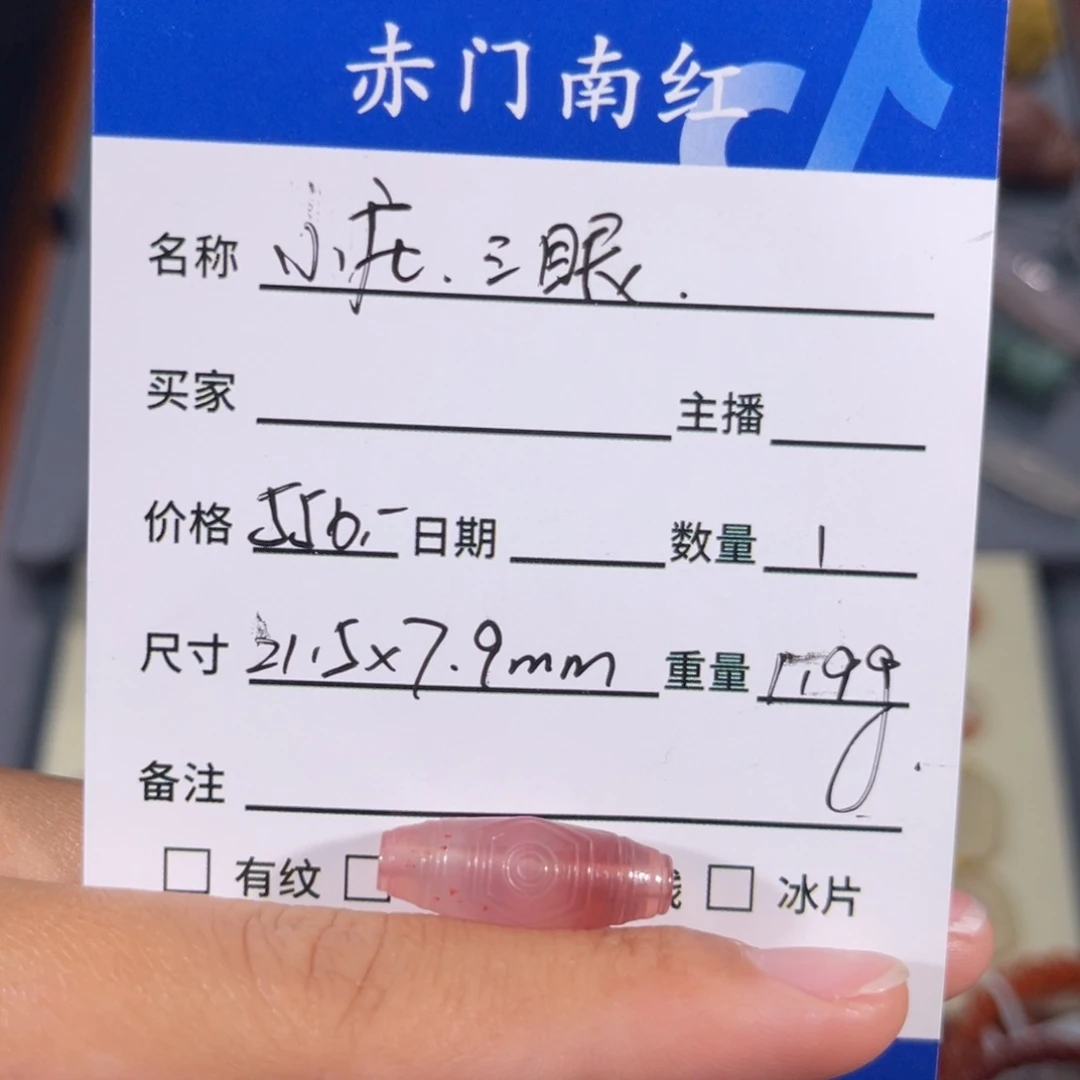 赤门南红
名称 小庄.三眼.
买家 主播
价格 550.- 日期 数量 1
尺寸 21.5x7.9mm 重量 1.9g
备注
有纹 冰片